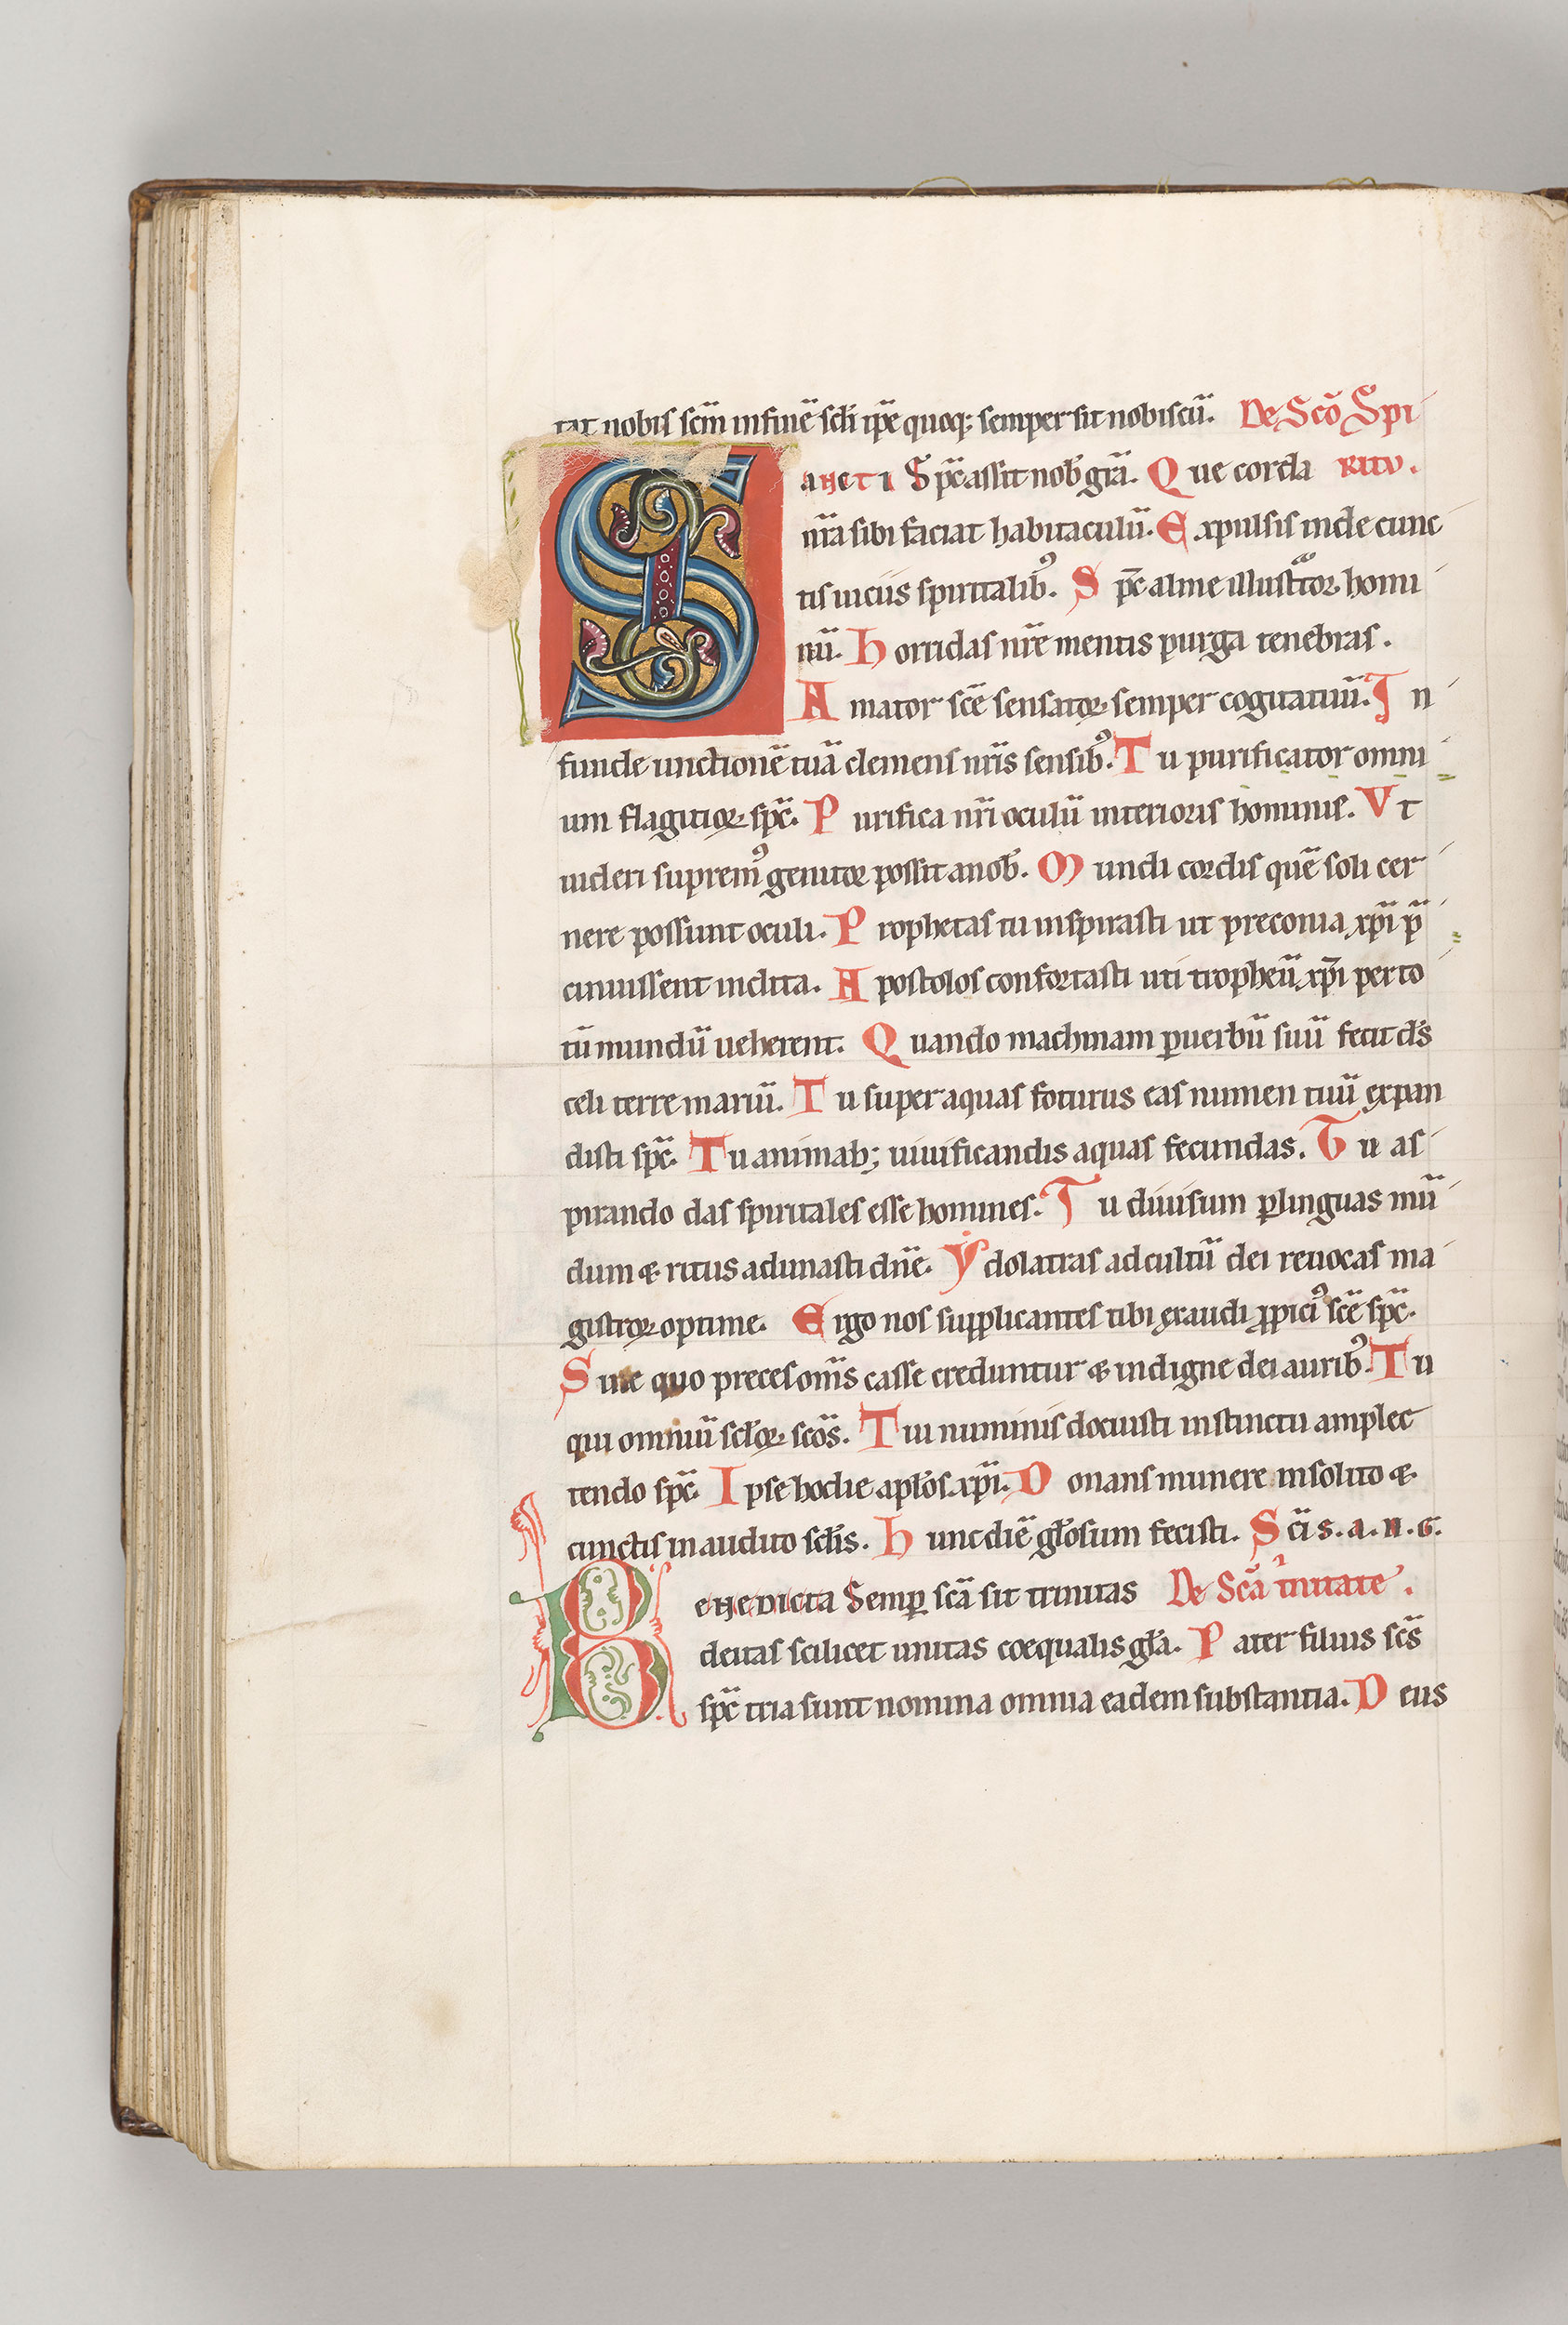 tat nobis scm̄ in finē scłi ip̄e quoq; semper sit nobiscū. De Scō Spi
Sancti Sp̄c assit nob̄ grā. Que corda ritu.
nrā sibi faciat habitaculū. Expulsis inde cunc
tis uiciis spiritalibꝰ. Sp̄c alme illustᵃtoꝝ homi
nū. Horridas nrē mentis purga tenebras.
Amator scē sensatoꝝ semper cogitatuū. In
funde unctionē tuā clemens nrīs sensibꝰ. Tu purificator omni
um flagitioꝝ sp̄c. Purifica nrī oculū interioris hominis. Vt
uideri supremꝰ genitor possit a nob̄. Mundi cordis quē soli cer
nere possunt oculi. Prophetas tu inspirasti ut preconia xp̄i p̄
cinuissent inclita. Apostolos confortasti uti tropheū xp̄i per to
tū mundū ueherent. Quando machinam ꝑ uerbū suū fecit ds̄
celi terre mariū. Tu super aquas foturus eas numen tuū expan
disti sp̄c. Tu animab; uiuificandis aquas fecundas. Tu as
pirando das spiritales esse homines. Tu diuisum ꝑ linguas mū
dum & ritus adunasti dn̄e. Ydolatras ad cultū dei reuocas ma
gistroꝝ optime. Ergo nos supplicantes tibi exaudi ꝓpiciꝰ scē sp̄c.
Sine quo preces om̄s casse creduntur & indigne dei auribꝰ. Tu
qui omniū scłoꝝ scōs. Tui numinis docuisti instinctu amplec
tendo sp̄c. Ipse hodie apłos xp̄i. Donans munere insolito &
cunctis inaudito scłis. Hunc diē głosum fecisti. Scī s. a. n. g.
Benedicta Semꝑ scā sit trinitas De Scā t'nitate.
deitas scilicet unitas coequalis głā. Pater filius scs̄
sp̄c tria sunt nomina omnia eadem substantia. Deus